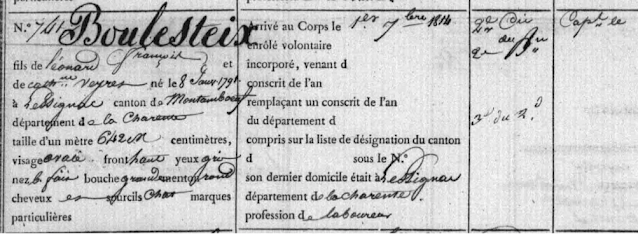 particulières
N.º 741 Boulesteix
François
fils de léonard et
de cath.ne Veyres né le 8 Janv. 1791
à Lessignac canton de Montambœuf
département de la Charente
taille d'un mètre 642 M centimètres,
visage ovale front haut yeux gris
nez b. fais bouche grande menton rond
cheveux et sourcils chat marques
particulières
Arrivé au Corps le 1.er 7.bre 1814
enrôlé volontaire
incorporé, venant d
conscrit de l'an
remplaçant un conscrit de l'an
du département d
compris sur la liste de désignation du canton
d sous le N.º
son dernier domicile était à Lessignac
département de la charente
profession de laboureur
2.e
du B.n
2.e
3.e du 2.d